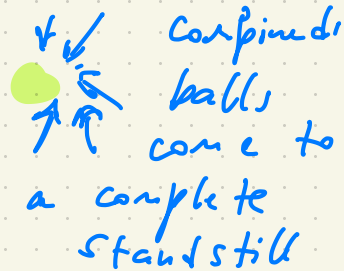 Confined
balls
come to
a complete
standstill